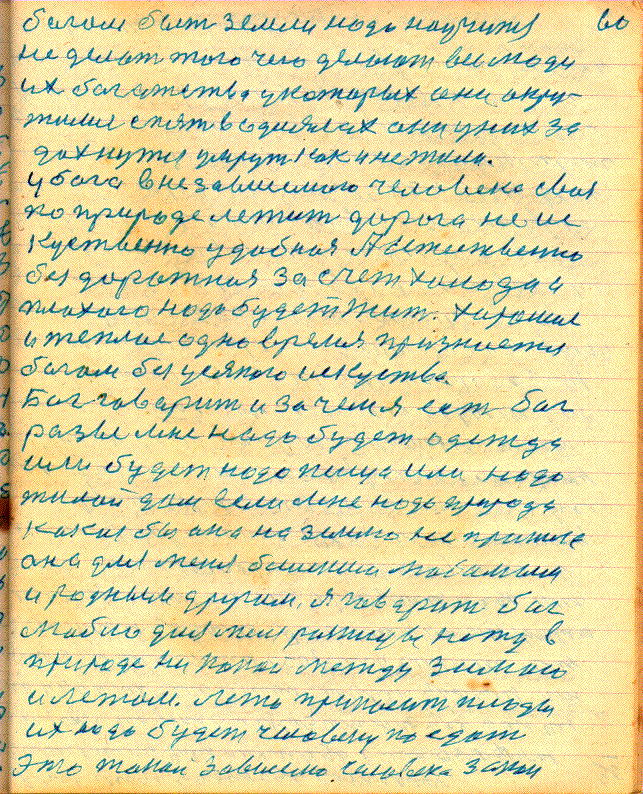 богом быт земли надо научится 60
не делат того чего делают все люди
их богатства укоторых они окру-
жили спят в одеялах они у них за
дохнутся умрут как и не жили.
У бога в независимого человека своя
по природе лежит дорога не ис
куственно удобная А естественно
без дорожная За счет холода и
плохого надо будет жит. Хорошое
и теплое одно время признается
богом без усякого искуства.
Бог говарит и За чем я ест бог
разве мне надо будет одежда
или будет надо пища или надо
жилой дом Если мне надо природа
какая бы она на землю не пришла
она для меня близким любимым
и родным другом, я говарит бог
люблю для меня разницы нету в
природе ни какой между Зимою
и летом. Лето приносит плоды
их надо будет человеку поедат
Это такой зависемо человека закон